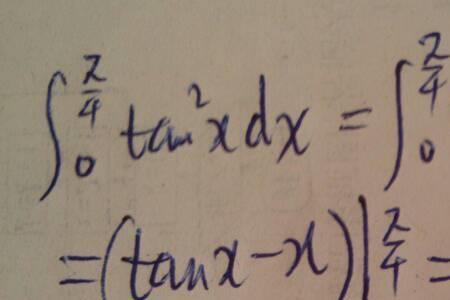 ∫₀^{π/4} tan²x dx = ∫₀^{π/4}
= (tanx − x)|^{π/4} =